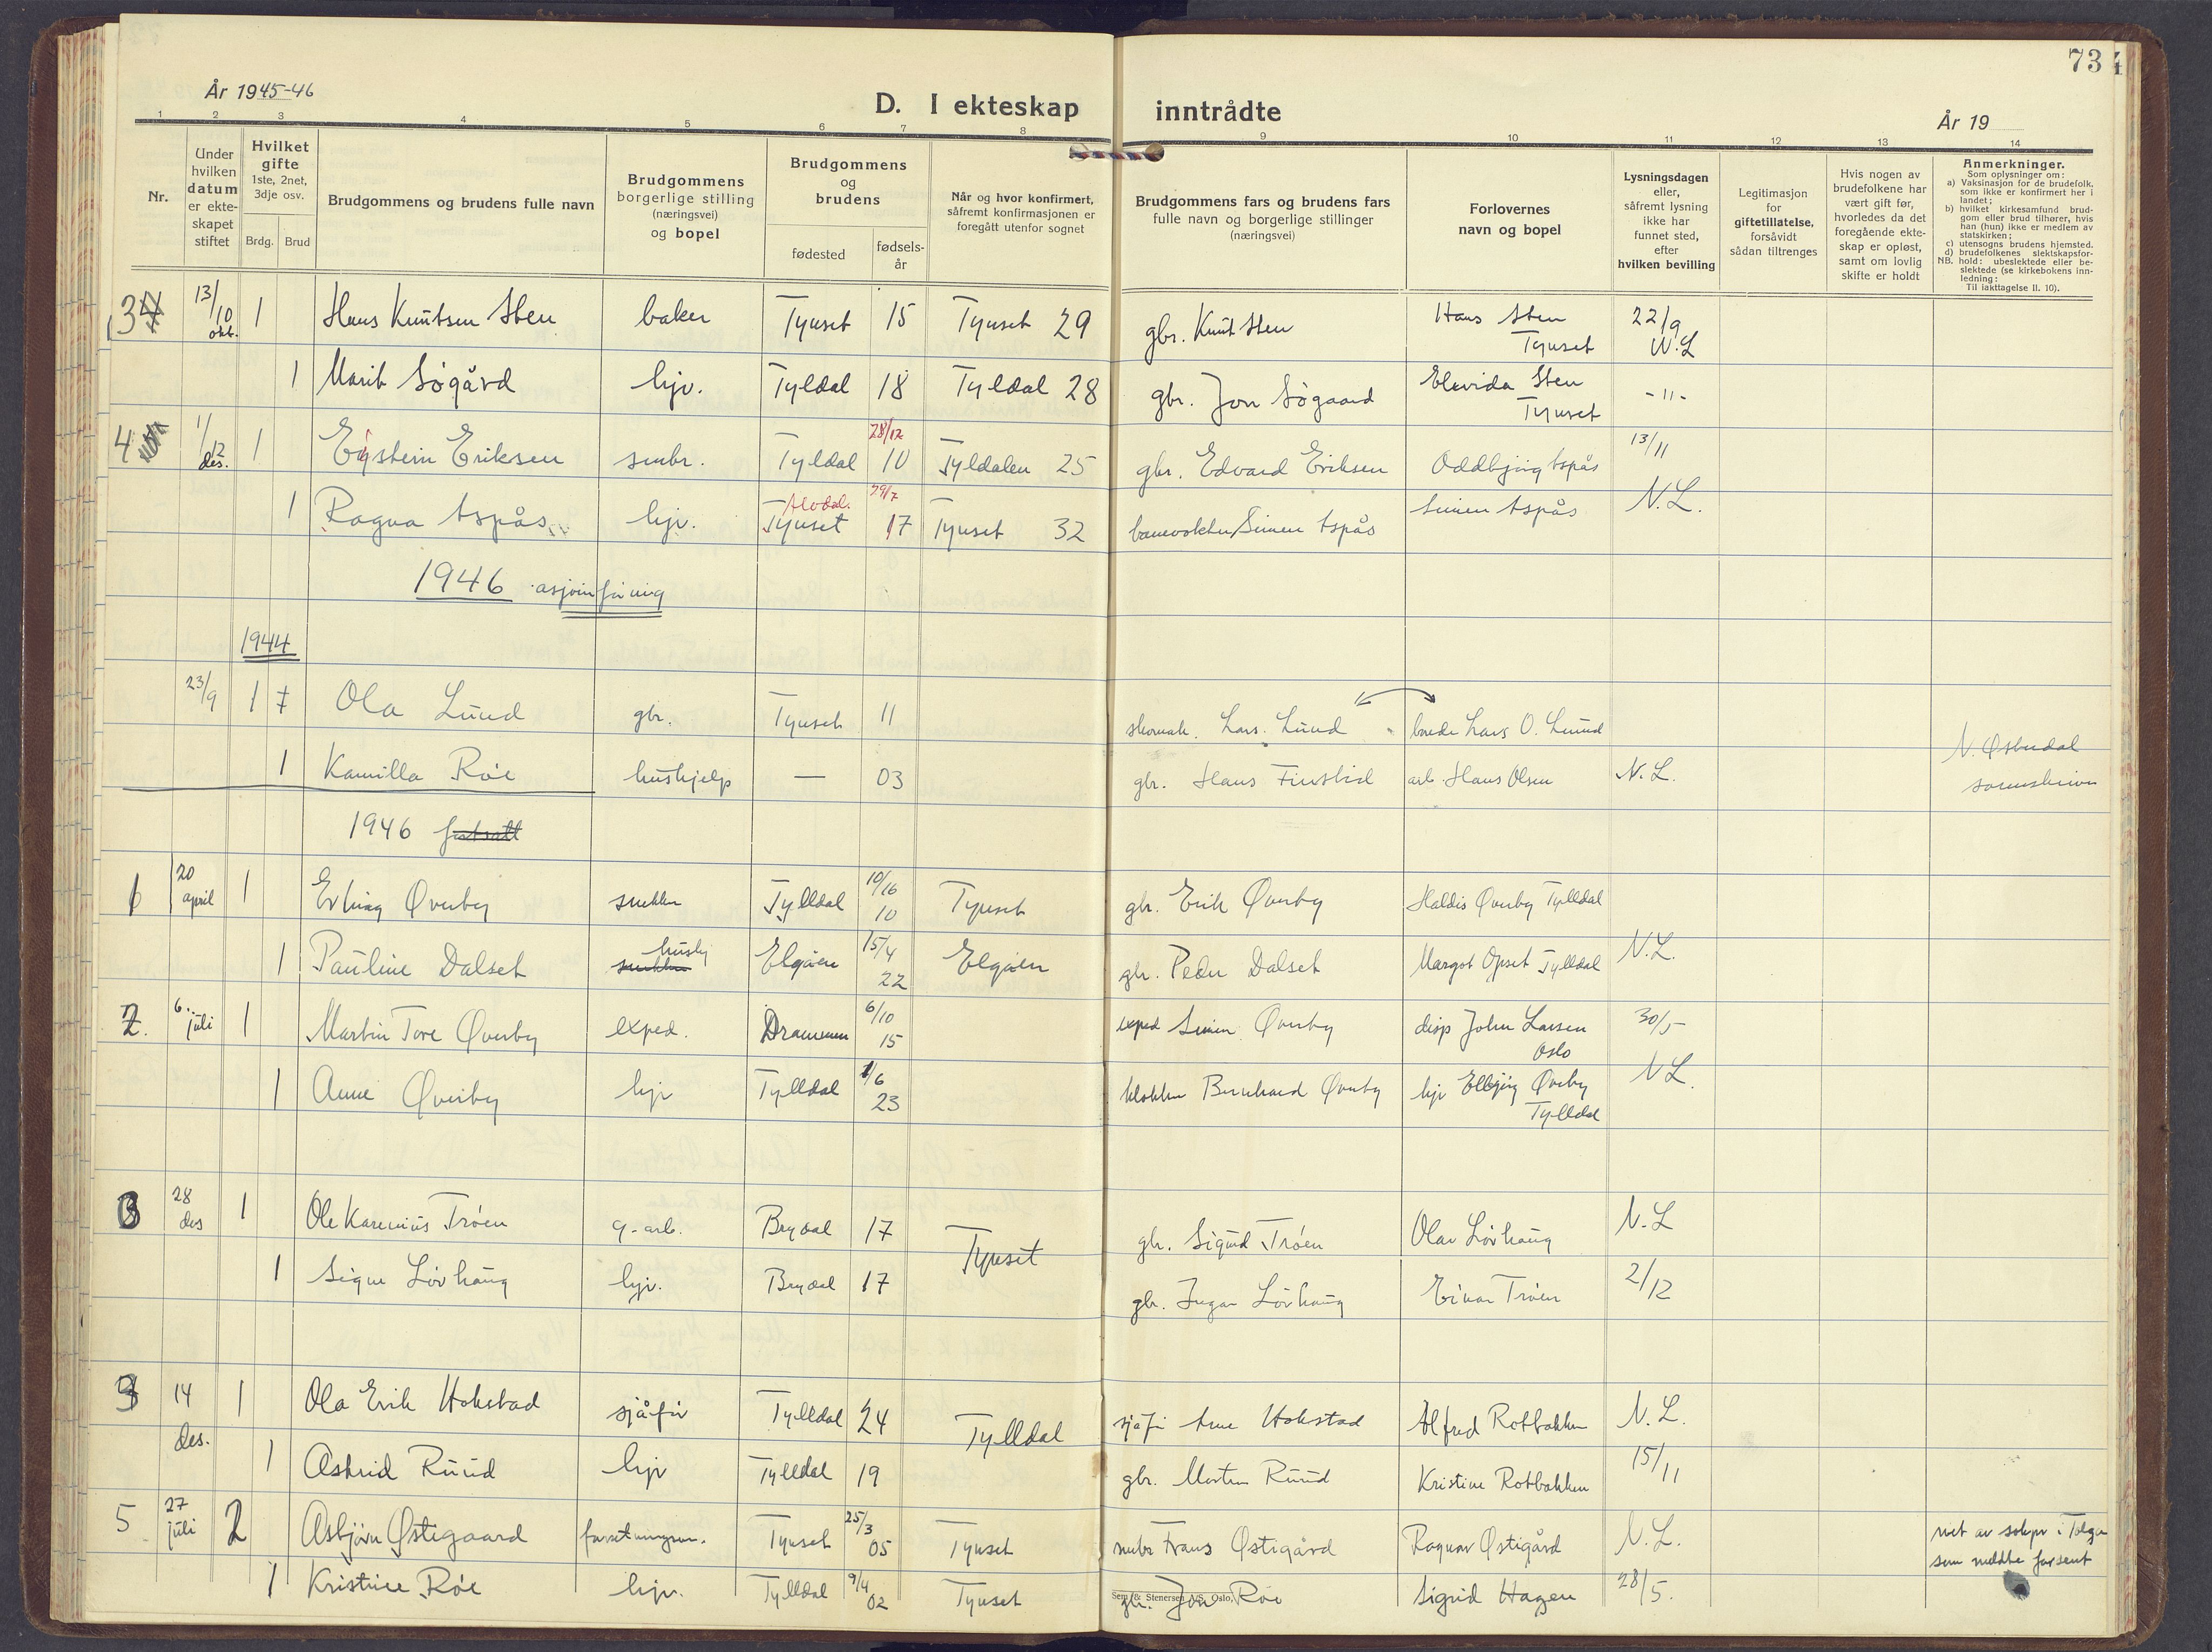 År 1945-46
D. I ekteskap inntrådte
År 19
73
1 2 3 4 5 6 7 8 9 10 11 12 13 14
Nr.
Under hvilken datum er ekte-skapet stiftet
Hvilket gifte 1ste, 2net, 3dje osv.
Brdg. Brud
Brudgommens og brudens fulle navn
Brudgommens borgerlige stilling (næringsvei) og bopel
Brudgommens og brudens
fødested
fødsels-år
Når og hvor konfirmert, såfremt konfirmasjonen er foregått utenfor sognet
Brudgommens fars og brudens fars fulle navn og borgerlige stillinger (næringsvei)
Forlovernes navn og bopel
Lysningsdagen eller, såfremt lysning ikke har funnet sted, efter hvilken bevilling
Legitimasjon for giftetillatelse, forsåvidt sådan tiltrenges
Hvis nogen av brudefolkene har vært gift før, hvorledes da det foregående ekte-skap er opløst, samt om lovlig skifte er holdt
Anmerkninger.
Som oplysninger om:
a) Vaksinasjon for de brudefolk, som ikke er konfirmert her i landet;
b) hvilket kirkesamfund brud-gom eller brud tilhører, hvis han (hun) ikke er medlem av statskirken;
c) utensogns brudens hjemsted.
d) brudefolkenes slektskapsfor-hold: ubeslektede eller be-slektede (se kirkebokens inn-ledning:
NB.
Til iakttagelse II. 10).
3 13/10 okt. 1 Hans Knutsen Sten baker Tynset 15 Tynset 29 gbr. Knut Sten Hans Sten Tynset 22/9 N.L
1 Marit Søgård hjv. Tyldal 18 Tyldal 28 gbr. Jon Søgaard Elevida Sten Tynset -"-
4 1/12 des. 1 Eystein Eriksen smbr. Tyldal 28/12 10 Tyldalen 25 gbr. Edvard Eriksen Oddbjørg Aspås 13/11
1 Ragna Aspås hjv. Alvdal. Tynset 29/7 17 Tynset 32 banevokter Simen Aspås Simen Aspås N.L.
1946 asjourføring
1944
23/9 1 Ola Lund gbr. Tynset 11 skomak. Lars Lund Lars O. Lund
1 Kamilla Røe hushjelp — 03 gbr. Hans Finstad arb. Hans Olsen N.L. N. Østerdal sorenskriver
1946 fortsatt
1 20 april 1 Erling Øverby snekker Tylldal 10/16 10 Tynset gbr. Erik Øverby Haldis Øverby Tylldal
1 Pauline Dalset snekker hushj Elgåen 15/4 22 Elgåen gbr. Peder Dalset Margot Opset Tylldal N.L.
2. 6. juli 1 Martin Tore Øverby exped. Drammen 6/10 15 exped Simen Øverby disp John Larsen Oslo 30/5
1 Anne Øverby hjv Tylldal 1/6 23 klokker Bernhard Øverby hjv Ellbjørg Øverby Tylldal N L.
3 28 des 1 Ole Karenius Trøen g-arb. Brydal 17 Tynset gbr. Sigurd Trøen Olav Løvhaug N.L
1 Signe Løvhaug hjv. Brydal 17 gbr. Ingar Løvhaug Einar Trøen 2/12
14 des. 1 Ola Erik Hokstad sjåfør Tylldal 24 Tylldal sjåfør Arne Hokstad Alfred Rotbakken N.L.
1 Astrid Ruud hjv Tylldal 19 gbr. Morten Ruud Kristine Rotbakken 15/11
5 27 juli 2 Asbjørn Østigaard forretningsm. Tynset 25/3 05 Tynset smbr Frans Østigård Ragnar Østigård N.L. viet av sokpr i Tolga som meldte for sent
1 Kristine Røe hjv. Tylldal 9/4 02 Tynset gbr. Jon Røe Sigrid Hagen 28/5.
Sem & Stenersen A/S, Oslo.